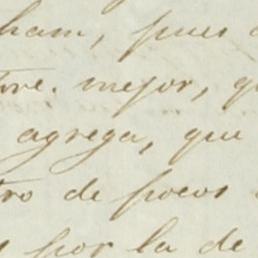 ham, pues
tre. mejor, q
agrega, que
tro de pocos
por la de